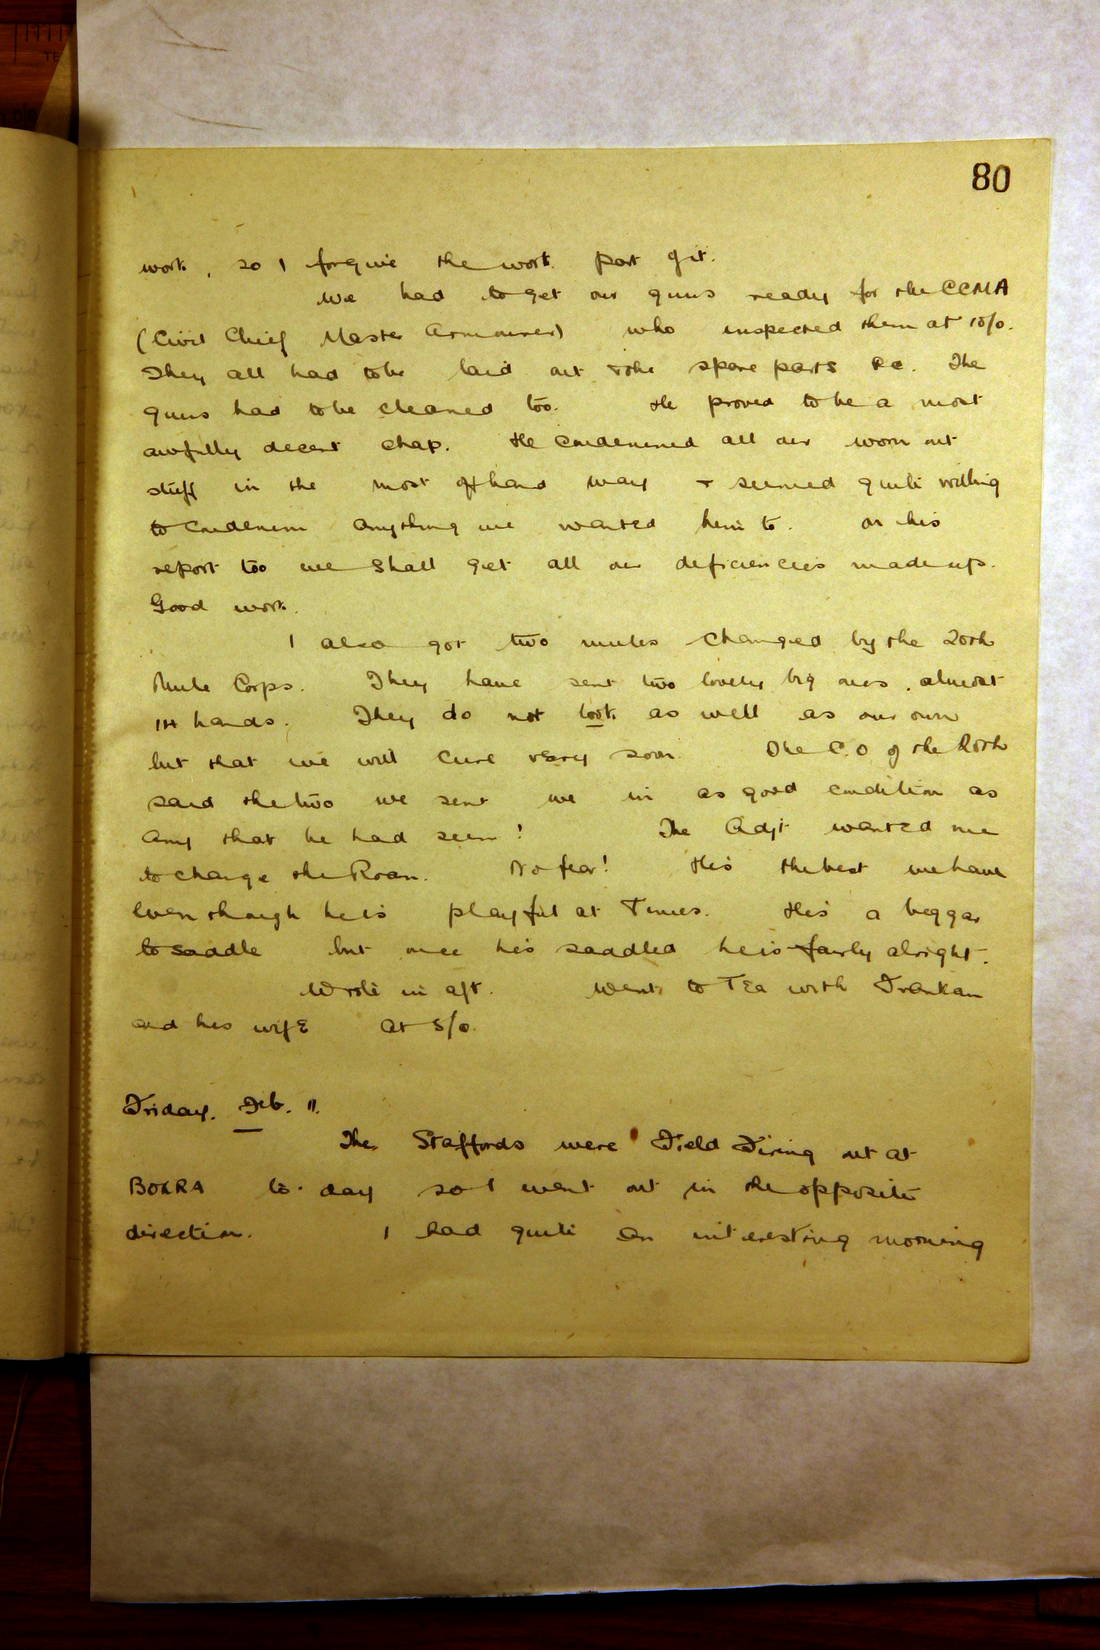 80
work, so I forgive the work part of it.
We had to get our guns ready for the CCMA
(Civil Chief Master Armourer) who inspected them at 10/0.
They all had to be laid out & the spare parts &c. The
guns had to be cleaned too. He proved to be a most
awfully decent chap. He condemned all our worn out
stuff in the most offhand way & seemed quite willing
to condemn anything we wanted him to. On his
report too we shall get all our deficiencies made up.
Good work.
I also got two mules changed by the 20th
Mule Corps. They have sent two lovely big ones, almost
14 hands. They do not look as well as our own
but that we will cure very soon. The C.O of the 20th
said the two we sent we in as good condition as
any that he had seen! The Adjt wanted me
to change the Roan. No fear! He's the best we have
even though he is playful at Times. He's a beggar
to saddle but once he's saddled he is fairly alright.
Wrote in aft. Went to Tea with
and his wife at 5/0.
Friday. Feb. 11.
The Staffords were Field Firing out at
to-day so I went out in the opposite
direction. I had quite an interesting morning